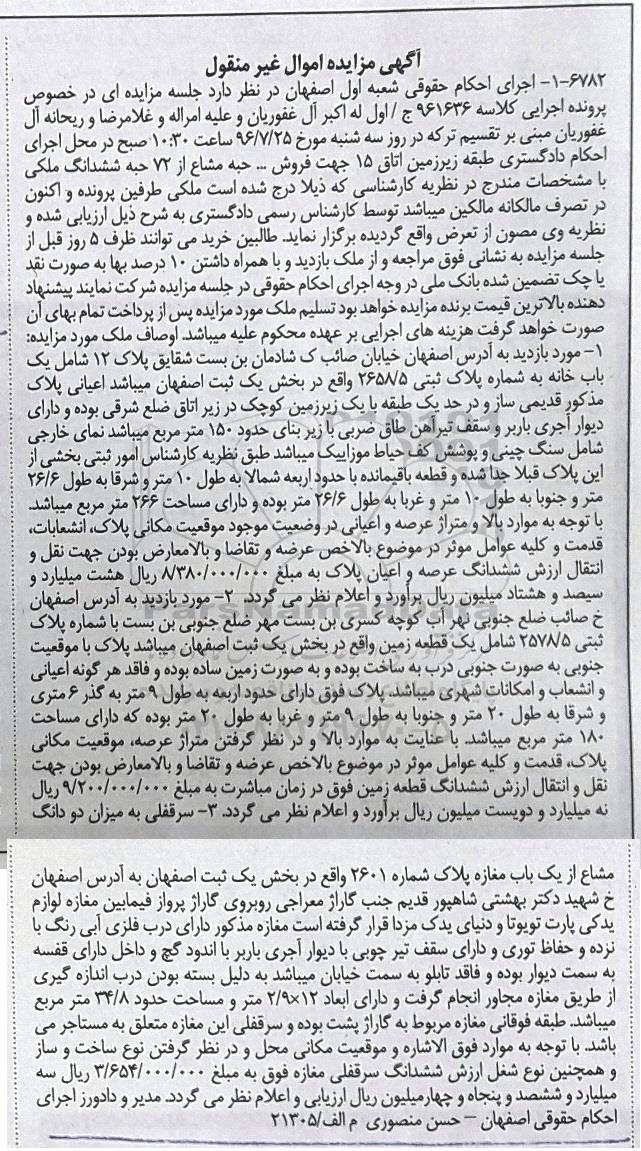 آگهی مزایده اموال غیر منقول
۱-۶۷۸۲- اجرای احکام حقوقی شعبه اول اصفهان در نظر دارد جلسه مزایده ای در خصوص
پرونده اجرایی کلاسه ۹۶۱۶۳۶ ج / اول له اکبر آل غفوریان و علیه امراله و غلامرضا و ریحانه آل
غفوریان مبنی بر تقسیم ترکه در روز سه شنبه مورخ ۹۶/۷/۲۵ ساعت ۱۰:۳۰ صبح در محل اجرای
احکام دادگستری طبقه زیرزمین اتاق ۱۵ جهت فروش ... حبه مشاع از ۷۲ حبه ششدانگ ملکی
با مشخصات مندرج در نظریه کارشناسی که ذیلا درج شده است ملکی طرفین پرونده و اکنون
در تصرف مالکانه مالکین میباشد توسط کارشناس رسمی دادگستری به شرح ذیل ارزیابی شده و
نظریه وی مصون از تعرض واقع گردیده برگزار نماید. طالبین خرید می توانند ظرف ۵ روز قبل از
جلسه مزایده به نشانی فوق مراجعه و از ملک بازدید و با همراه داشتن ۱۰ درصد بها به صورت نقد
یا چک تضمین شده بانک ملی در وجه اجرای احکام حقوقی در جلسه مزایده شرکت نمایند پیشنهاد
دهنده بالاترین قیمت برنده مزایده خواهد بود تسلیم ملک مورد مزایده پس از پرداخت تمام بهای آن
صورت خواهد گرفت هزینه های اجرایی بر عهده محکوم علیه میباشد. اوصاف ملک مورد مزایده:
۱- مورد بازدید به آدرس اصفهان خیابان صائب ک شادمان بن بست شقایق پلاک ۱۲ شامل یک
باب خانه به شماره پلاک ثبتی ۲۶۵۸/۵ واقع در بخش یک ثبت اصفهان میباشد اعیانی پلاک
مذکور قدیمی ساز و در حد یک طبقه با یک زیرزمین کوچک در زیر اتاق ضلع شرقی بوده و دارای
دیوار آجری باربر و سقف تیرآهن طاق ضربی با زیر بنای حدود ۱۵۰ متر مربع میباشد نمای خارجی
شامل سنگ چینی و پوشش کف حیاط موزاییک میباشد طبق نظریه کارشناس امور ثبتی بخشی از
این پلاک قبلا جدا شده و قطعه باقیمانده با حدود اربعه شمالا به طول ۱۰ متر و شرقا به طول ۲۶/۶
متر و جنوبا به طول ۱۰ متر و غربا به طول ۲۶/۶ متر بوده و دارای مساحت ۲۶۶ متر مربع میباشد.
با توجه به موارد بالا و متراژ عرصه و اعیانی در وضعیت موجود موقعیت مکانی پلاک، انشعابات،
قدمت و کلیه عوامل موثر در موضوع بالاخص عرضه و تقاضا و بالامعارض بودن جهت نقل و
انتقال ارزش ششدانگ عرصه و اعیان پلاک به مبلغ ۸/۳۸۰/۰۰۰/۰۰۰ ریال هشت میلیارد و
سیصد و هشتاد میلیون ریال برآورد و اعلام نظر می گردد. ۲- مورد بازدید به آدرس اصفهان
خ صائب ضلع جنوبی نهر آب کوچه کسری بن بست مهر ضلع جنوبی بن بست با شماره پلاک
ثبتی ۲۵۷۸/۵ شامل یک قطعه زمین واقع در بخش یک ثبت اصفهان میباشد پلاک با موقعیت
جنوبی به صورت جنوبی درب به ساخت بوده و به صورت زمین ساده بوده و فاقد هر گونه اعیانی
و انشعاب و امکانات شهری میباشد. پلاک فوق دارای حدود اربعه به طول ۹ متر به گذر ۶ متری
و شرقا به طول ۲۰ متر و جنوبا به طول ۹ متر و غربا به طول ۲۰ متر بوده که دارای مساحت
۱۸۰ متر مربع میباشد. با عنایت به موارد بالا و در نظر گرفتن متراژ عرصه، موقعیت مکانی
پلاک، قدمت و کلیه عوامل موثر در موضوع بالاخص عرضه و تقاضا و بالامعارض بودن جهت
نقل و انتقال ارزش ششدانگ قطعه زمین فوق در زمان مباشرت به مبلغ ۹/۲۰۰/۰۰۰/۰۰۰ ریال
نه میلیارد و دویست میلیون ریال برآورد و اعلام نظر می گردد. ۳- سرقفلی به میزان دو دانگ
مشاع از یک باب مغازه پلاک شماره ۲۶۰۱ واقع در بخش یک ثبت اصفهان به آدرس اصفهان
خ شهید دکتر بهشتی شاهپور قدیم جنب گاراژ معراجی روبروی گاراژ پرواز فیمابین مغازه لوازم
یدکی پارت تویوتا و دنیای یدک مزدا قرار گرفته است مغازه مذکور دارای درب فلزی آبی رنگ با
نزده و حفاظ توری و دارای سقف تیر چوبی با دیوار آجری باربر با اندود گچ و داخل دارای قفسه
به سمت دیوار بوده و فاقد تابلو به سمت خیابان میباشد به دلیل بسته بودن درب اندازه گیری
از طریق مغازه مجاور انجام گرفت و دارای ابعاد ۱۲×۲/۹ متر و مساحت حدود ۳۴/۸ متر مربع
میباشد. طبقه فوقانی مغازه مربوط به گاراژ پشت بوده و سرقفلی این مغازه متعلق به مستاجر می
باشد. با توجه به موارد فوق الاشاره و موقعیت مکانی محل و در نظر گرفتن نوع ساخت و ساز
و همچنین نوع شغل ارزش ششدانگ سرقفلی مغازه فوق به مبلغ ۳/۶۵۴/۰۰۰/۰۰۰ ریال سه
میلیارد و ششصد و پنجاه و چهارمیلیون ریال ارزیابی و اعلام نظر می گردد. مدیر و دادورز اجرای
احکام حقوقی اصفهان – حسن منصوری م الف/۲۱۳۰۵